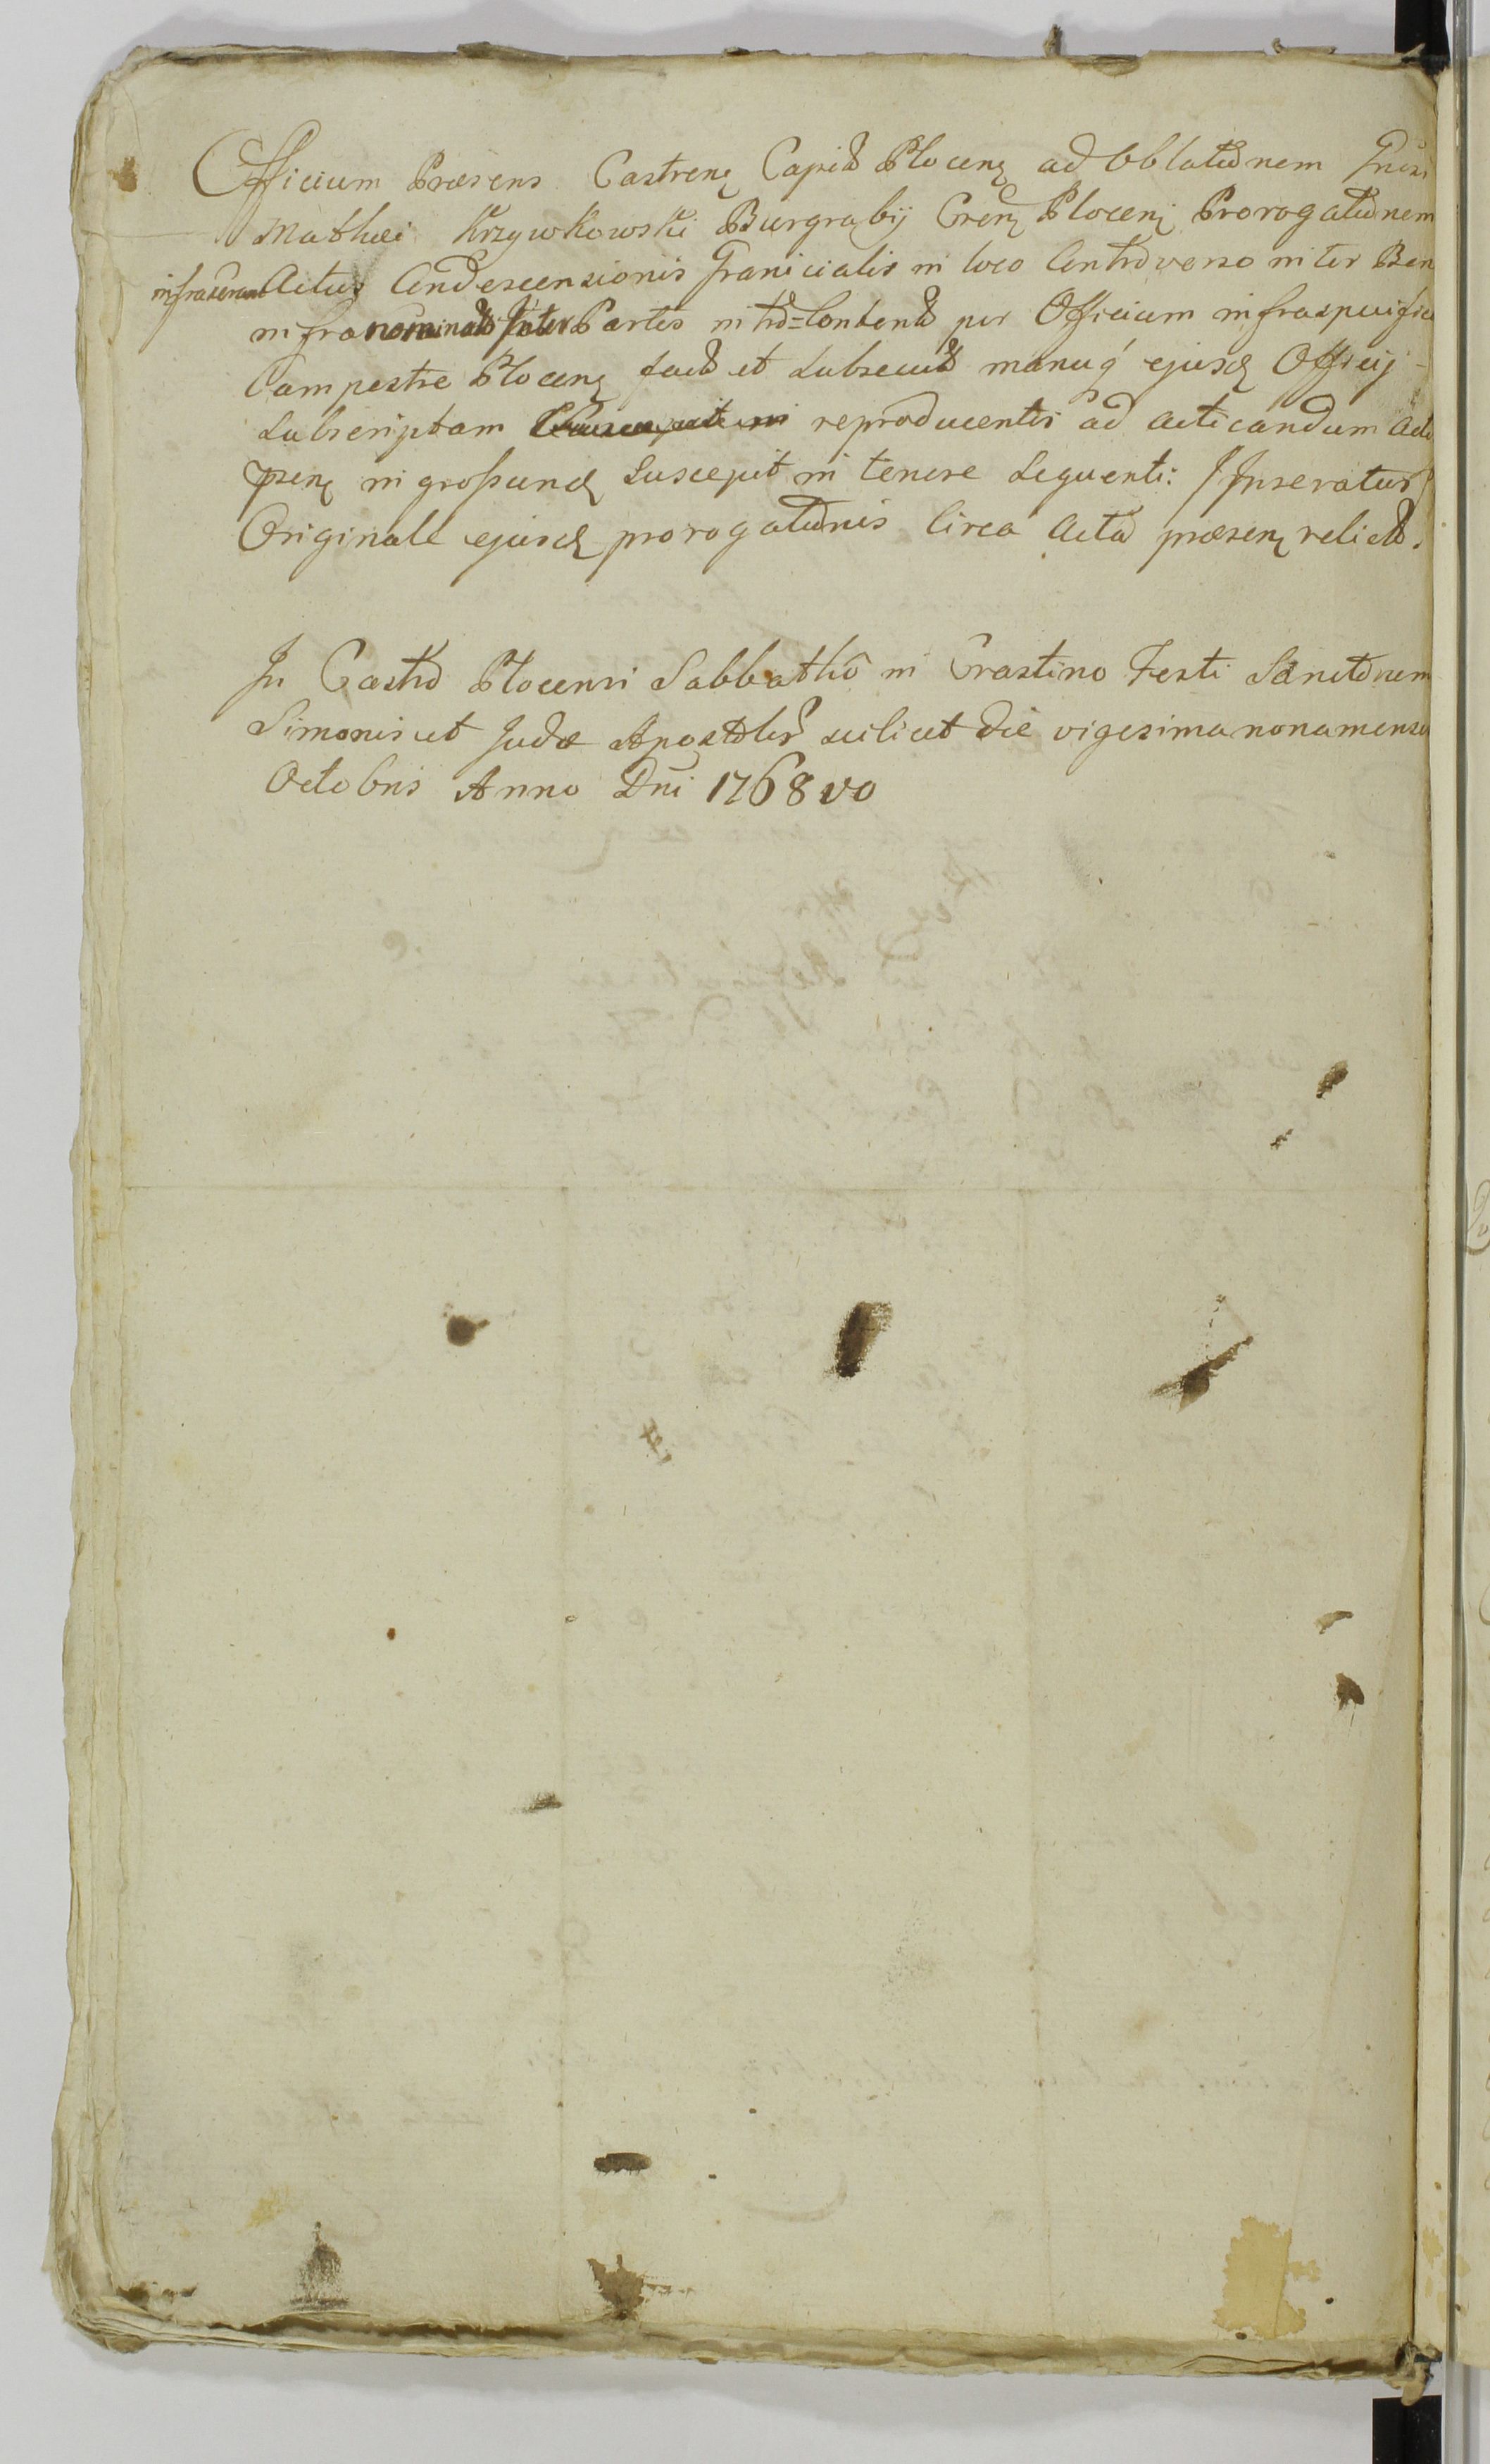 Officium Præsens Castren Capit Plocen ad Oblatãonem Gnõsi
Mathæi Krzywkowski Burgrabij Cren Plocen Prorogatõnem
Actus Condescensionis Granicialis in loco Controverso inter Bon
infra nominat Inter Partes intro=Content per Officium infraspecific
Campestre Plocen fact et Subsecut manuq ejusd Officij
Subscriptam reproducentis ad acticandum Act
psen ingrossand Suscepit in tenore Sequenti: /:Inseratur:/
Originale ejusd prorogatõnis Circa Acta præsen relict.
In Castro Plocensi Sabbathô in Crastino Festi Sanctorum
Simonis et Judæ Apostolor scilicet die vigesima nona mensis
Octobris Anno Dni 1768vo